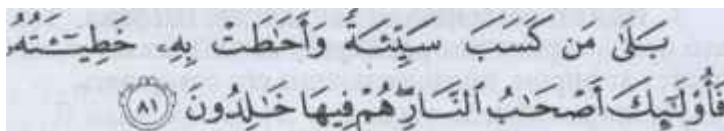 بَلَىٰ مَن كَسَبَ سَيِّئَةً وَأَحَٰطَتْ بِهِۦ خَطِيٓـَٔتُهُۥ
فَأُوْلَٰٓئِكَ أَصْحَٰبُ ٱلنَّارِۖ هُمْ فِيهَا خَٰلِدُونَ ﴿٨١﴾